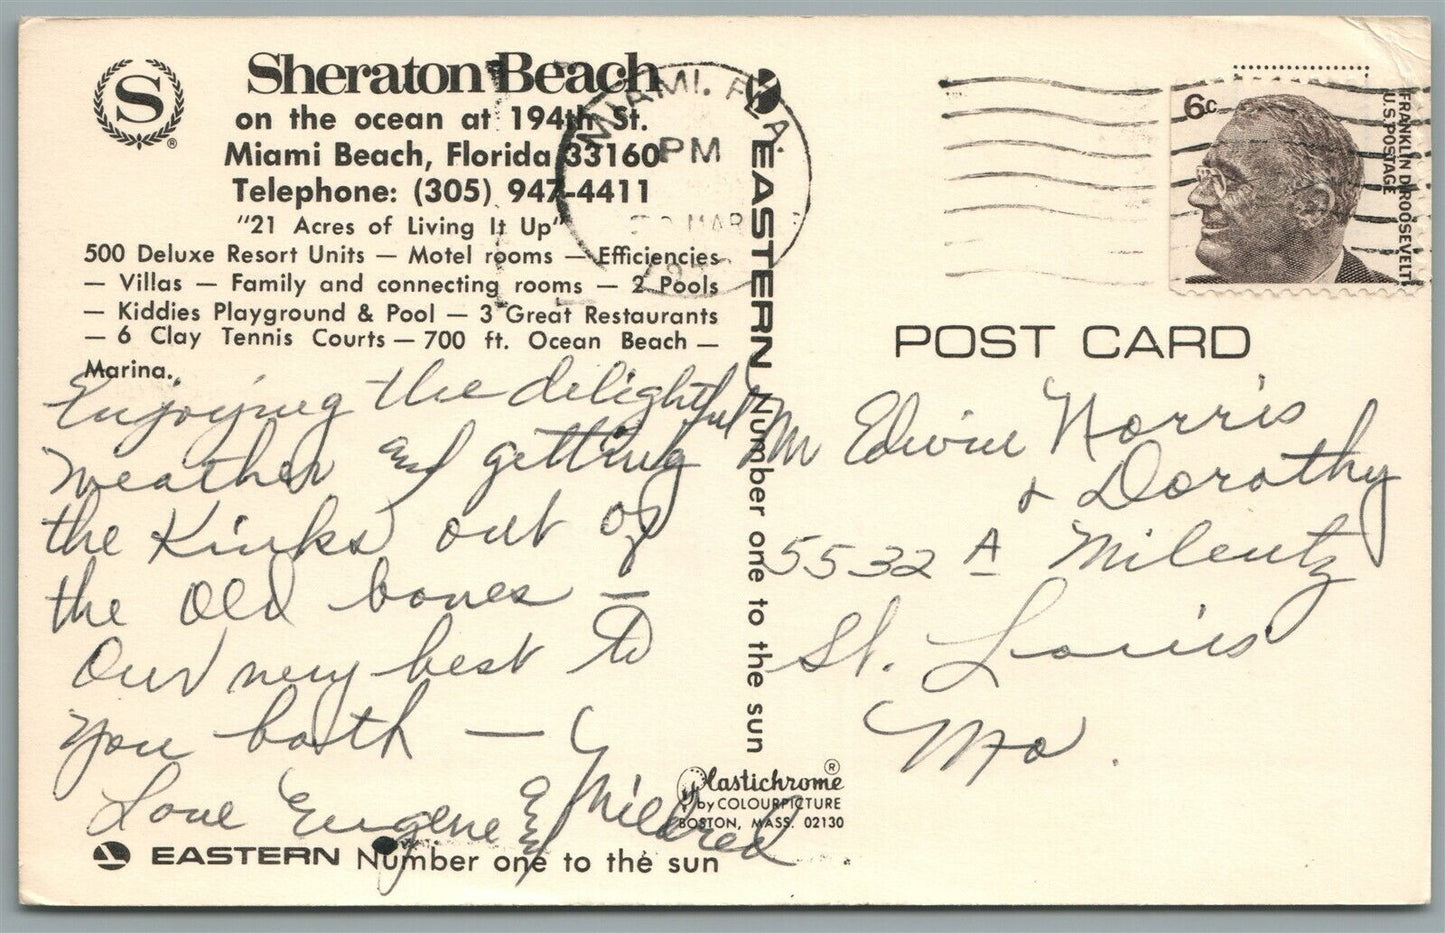 S
®
Sheraton Beach
on the ocean at 194th St.
Miami Beach, Florida 33160
Telephone: (305) 947-4411
"21 Acres of Living It Up"
500 Deluxe Resort Units — Motel rooms — Efficiencies
— Villas — Family and connecting rooms — 2 Pools
— Kiddies Playground & Pool — 3 Great Restaurants
— 6 Clay Tennis Courts — 700 ft. Ocean Beach —
Marina.
Enjoying the delightful
weather and getting
the Kinks out of
the old bones —
Our very best to
you both —
Love Eugene and Mildred
EASTERN Number one to the sun
MIAMI, FLA.
PM
MAR
EASTERN Number one to the sun
Plastichrome®
by COLOURPICTURE
BOSTON, MASS. 02130
6c
FRANKLIN D. ROOSEVELT
U.S. POSTAGE
POST CARD
Mr Edwin Norris
& Dorothy
5532 A Milentz
St. Louis
Mo.